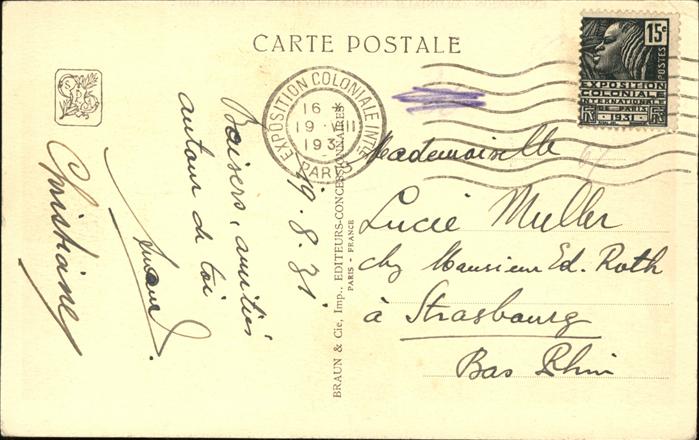 CARTE POSTALE
15c
POSTES
EXPOSITION
COLONIALE
INTERNATIONALE
PARIS
1931
EXPOSITION COLONIALE INTle
16 *
19 · VIII
193
PARIS
19.8.31
Baisers, amitiés
autour de toi
Christiane
BRAUN & Cie, Imp., EDITEURS-CONCESSIONNAIRES
PARIS - FRANCE
Mademoiselle
Lucie Muller
chz Monsieur Ed. Roth
à Strasbourg
Bas Rhin